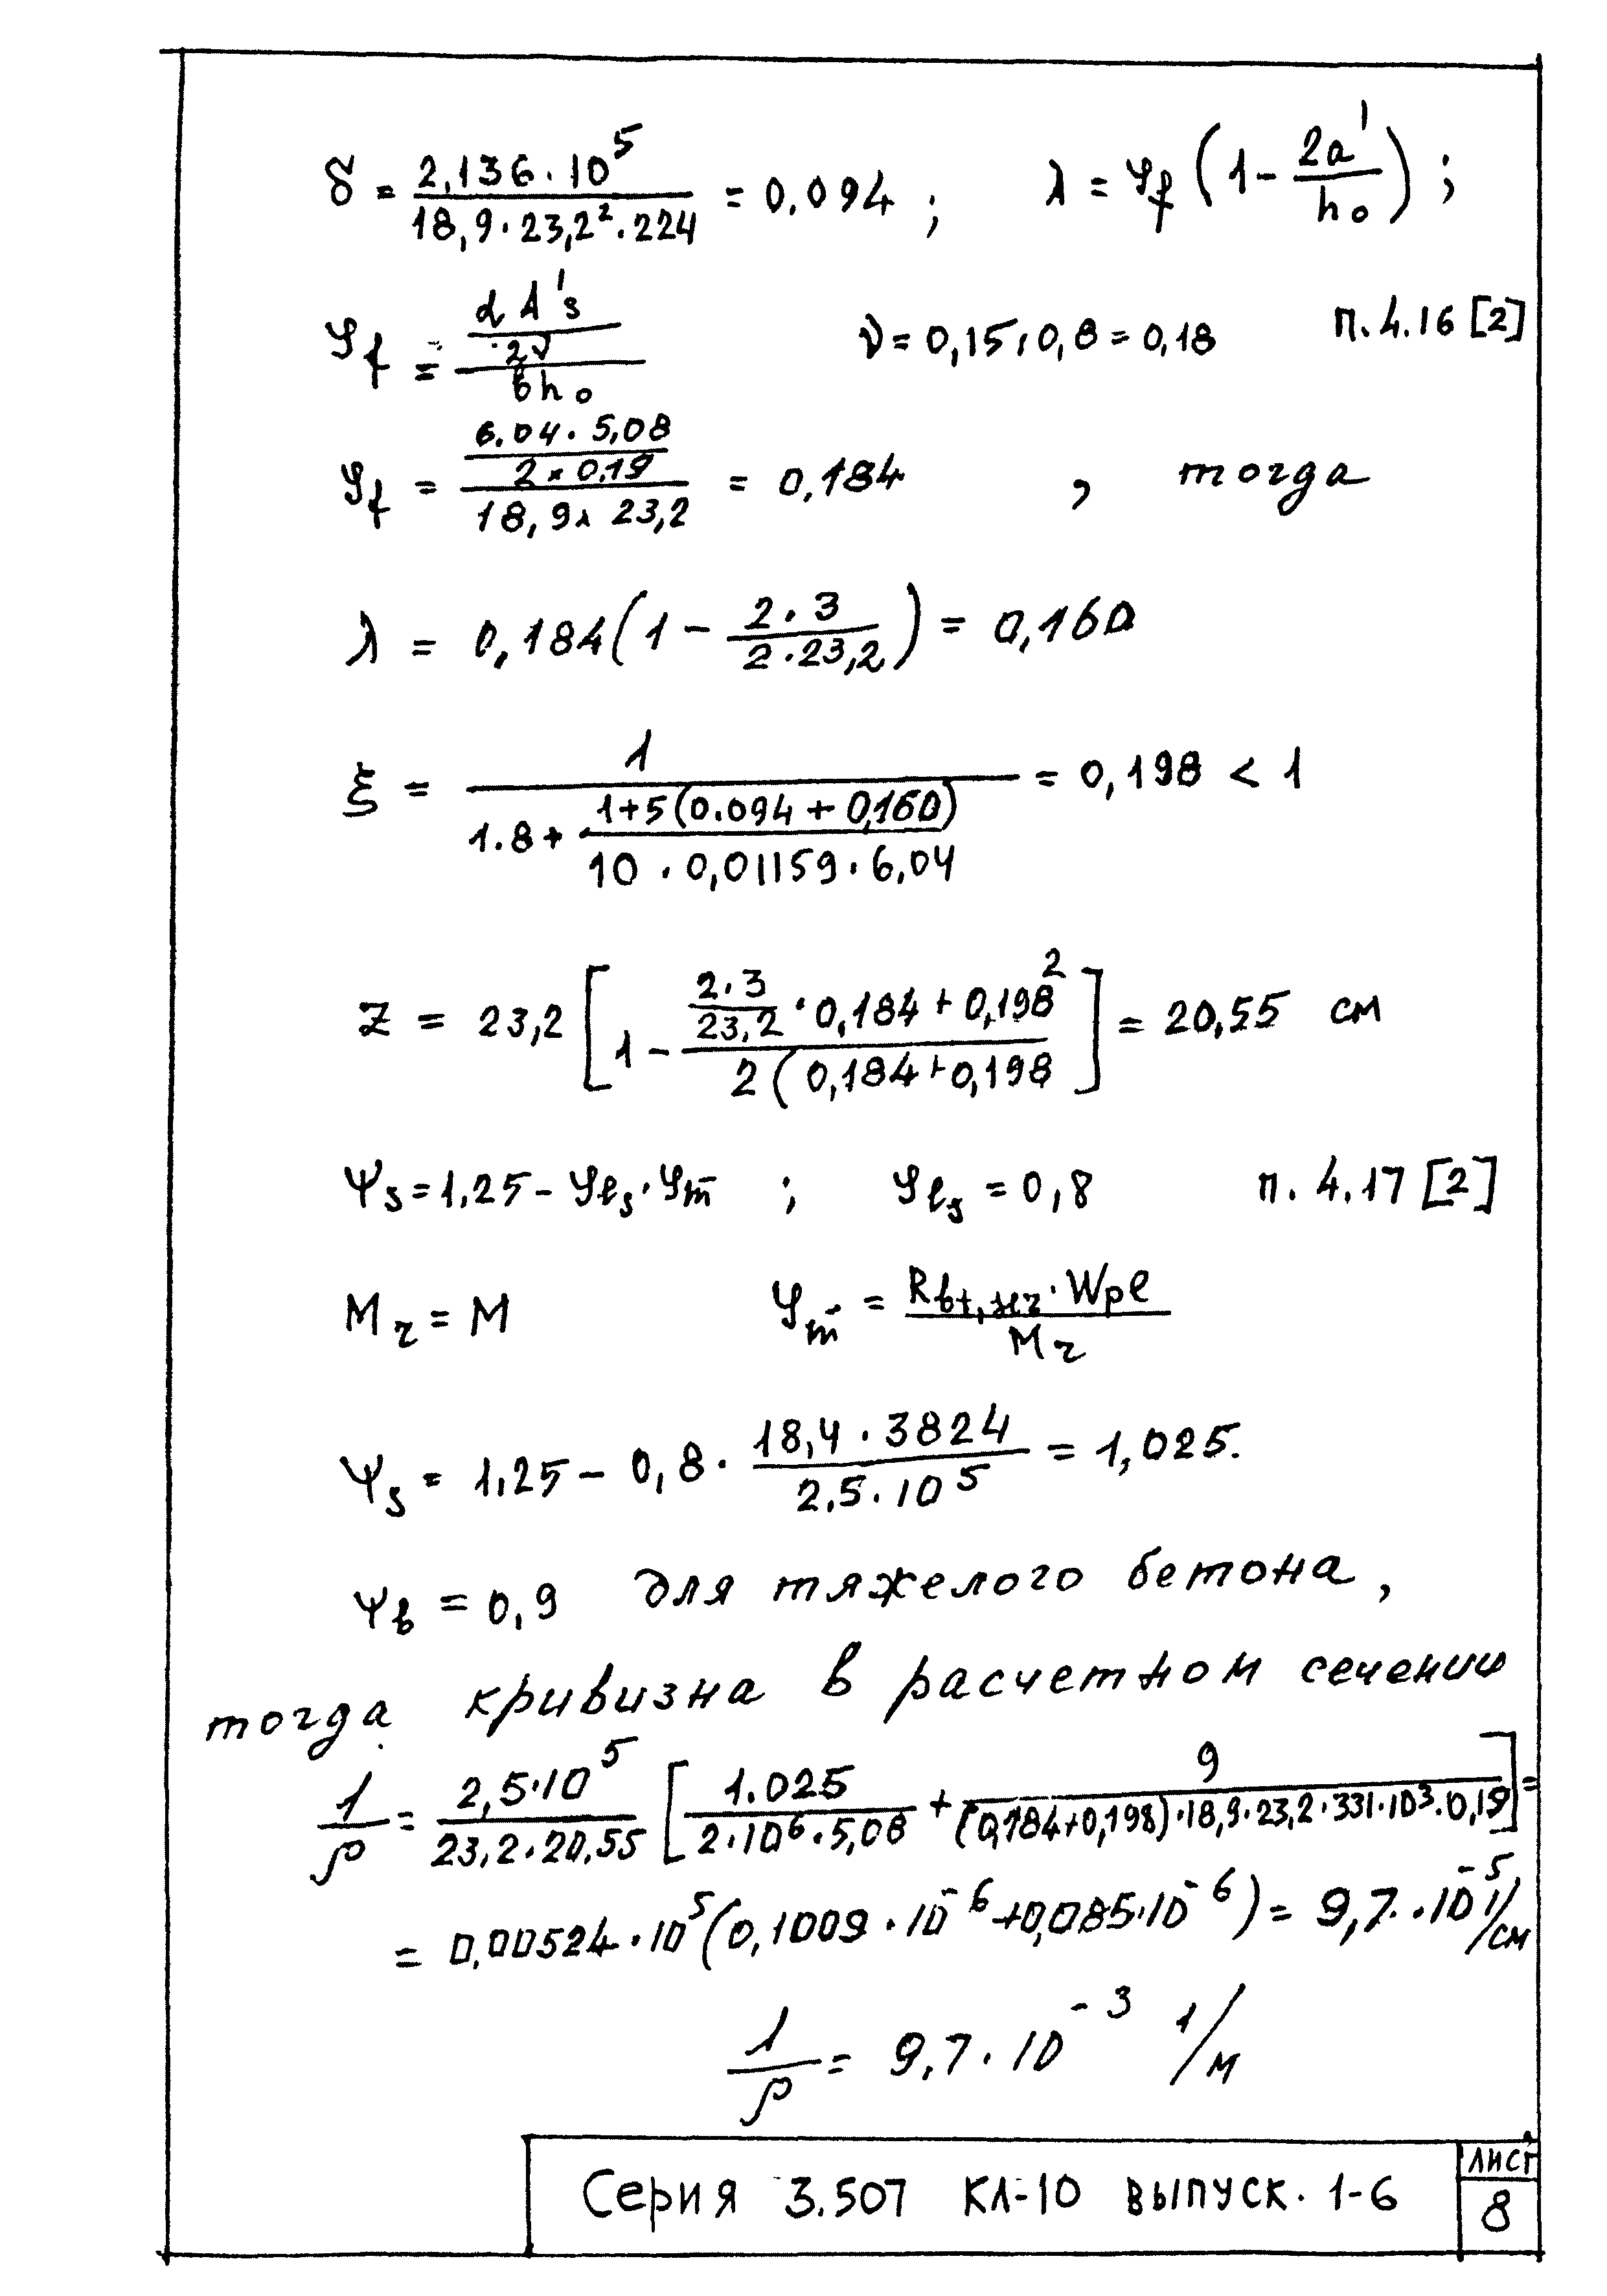 δ = 2,136·10⁵ / (18,9·23,2²·224) = 0,094 ; λ = φf (1 - 2a' / h₀) ;
φf = (αA's / 2ν) / (bh₀) ν = 0,15, 0,8 = 0,18 п. 4.16 [2]
φf = (6.04·5,08 / (2 × 0.19)) / (18,9 × 23,2) = 0,184 , тогда
λ = 0,184 (1 - 2·3 / (2·23,2)) = 0,160
ξ = 1 / (1.8 + (1+5(0.094 + 0,160)) / (10·0,01159·6,04)) = 0,198 < 1
Z = 23,2 [1 - (2·3 / 23,2 · 0,184 + 0,198²) / (2 (0,184+0,198] = 20,55 см
Ψs = 1,25 - φls·φm ; φls = 0,8 п. 4.17 [2]
Mг = M φm = Rbt,ser·Wpl / Mг
Ψs = 1,25 - 0,8 · 18,4·3824 / 2,5·10⁵ = 1,025.
Ψb = 0,9 для тяжелого бетона,
тогда кривизна в расчетном сечении
1/ρ = 2,5·10⁵ / (23,2·20,55) [1.025 / (2·10⁶·5,08) + 9 / ((0,184+0,198)·18,9·23,2·331·10³·0,19)] =
= 0,00524·10⁵ (0,1009·10⁻⁶ + 0,085·10⁻⁶) = 9,7·10⁻⁵ 1/см
1/ρ = 9,7·10⁻³ 1/м
Серия 3.507 КЛ-10 выпуск. 1-6
лист
8